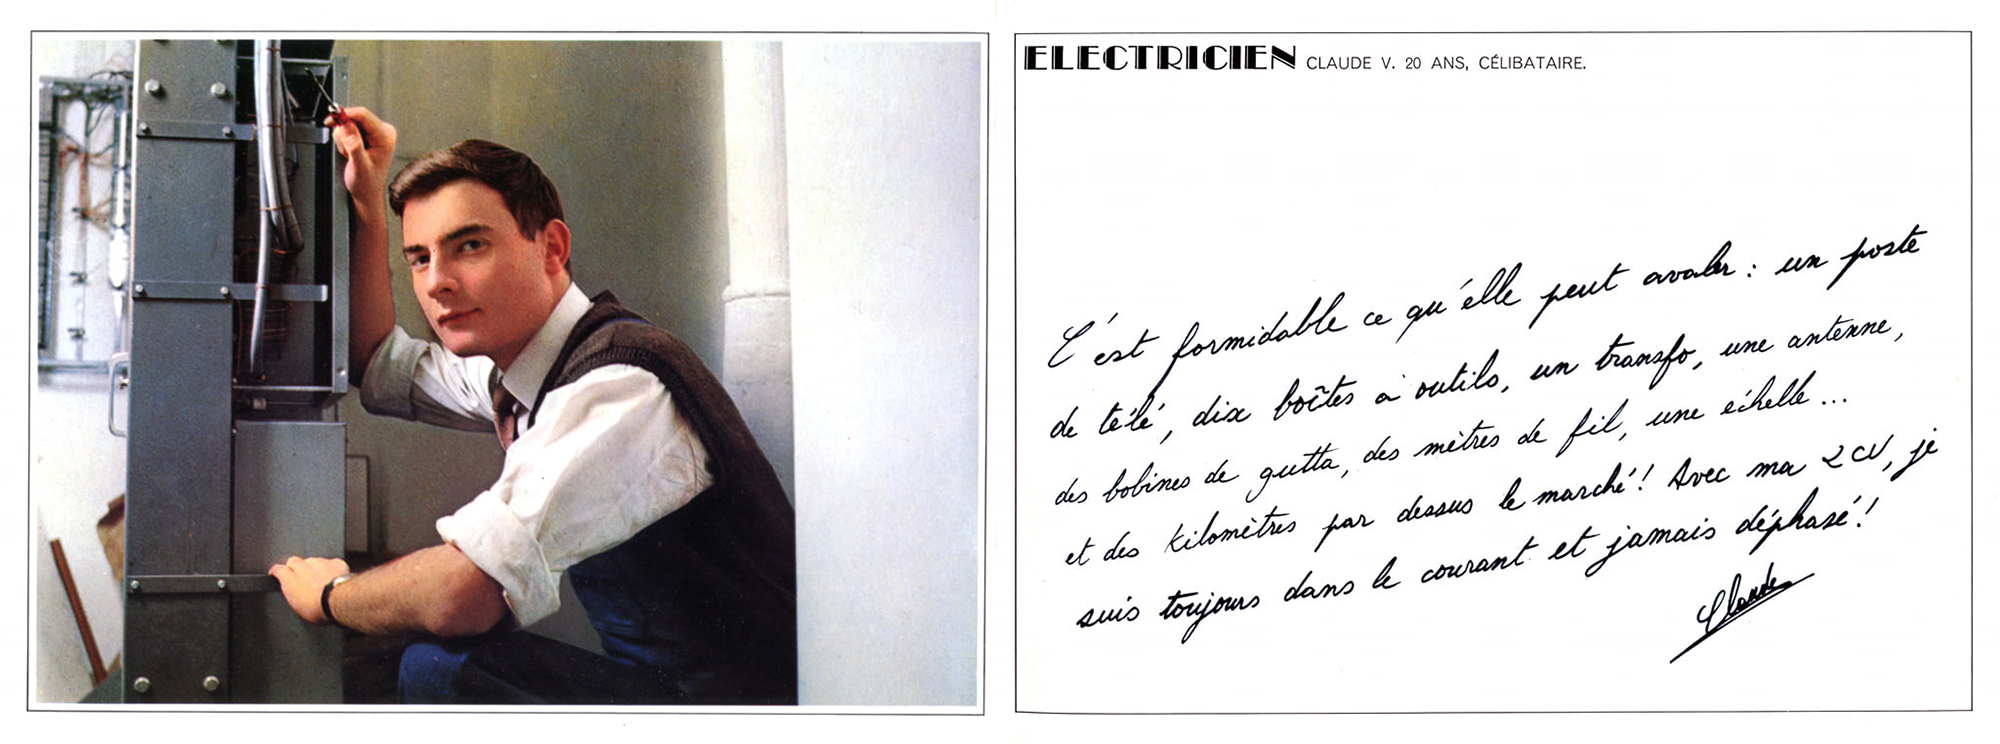 ELECTRICIEN CLAUDE V. 20 ANS, CÉLIBATAIRE.
C'est formidable ce qu'elle peut avaler : un poste
de télé, dix boîtes à outils, un transfo, une antenne,
des bobines de gutta, des mètres de fil, une échelle...
et des kilomètres par dessus le marché! Avec ma 2 CV, je
suis toujours dans le courant et jamais déphasé!
Claude